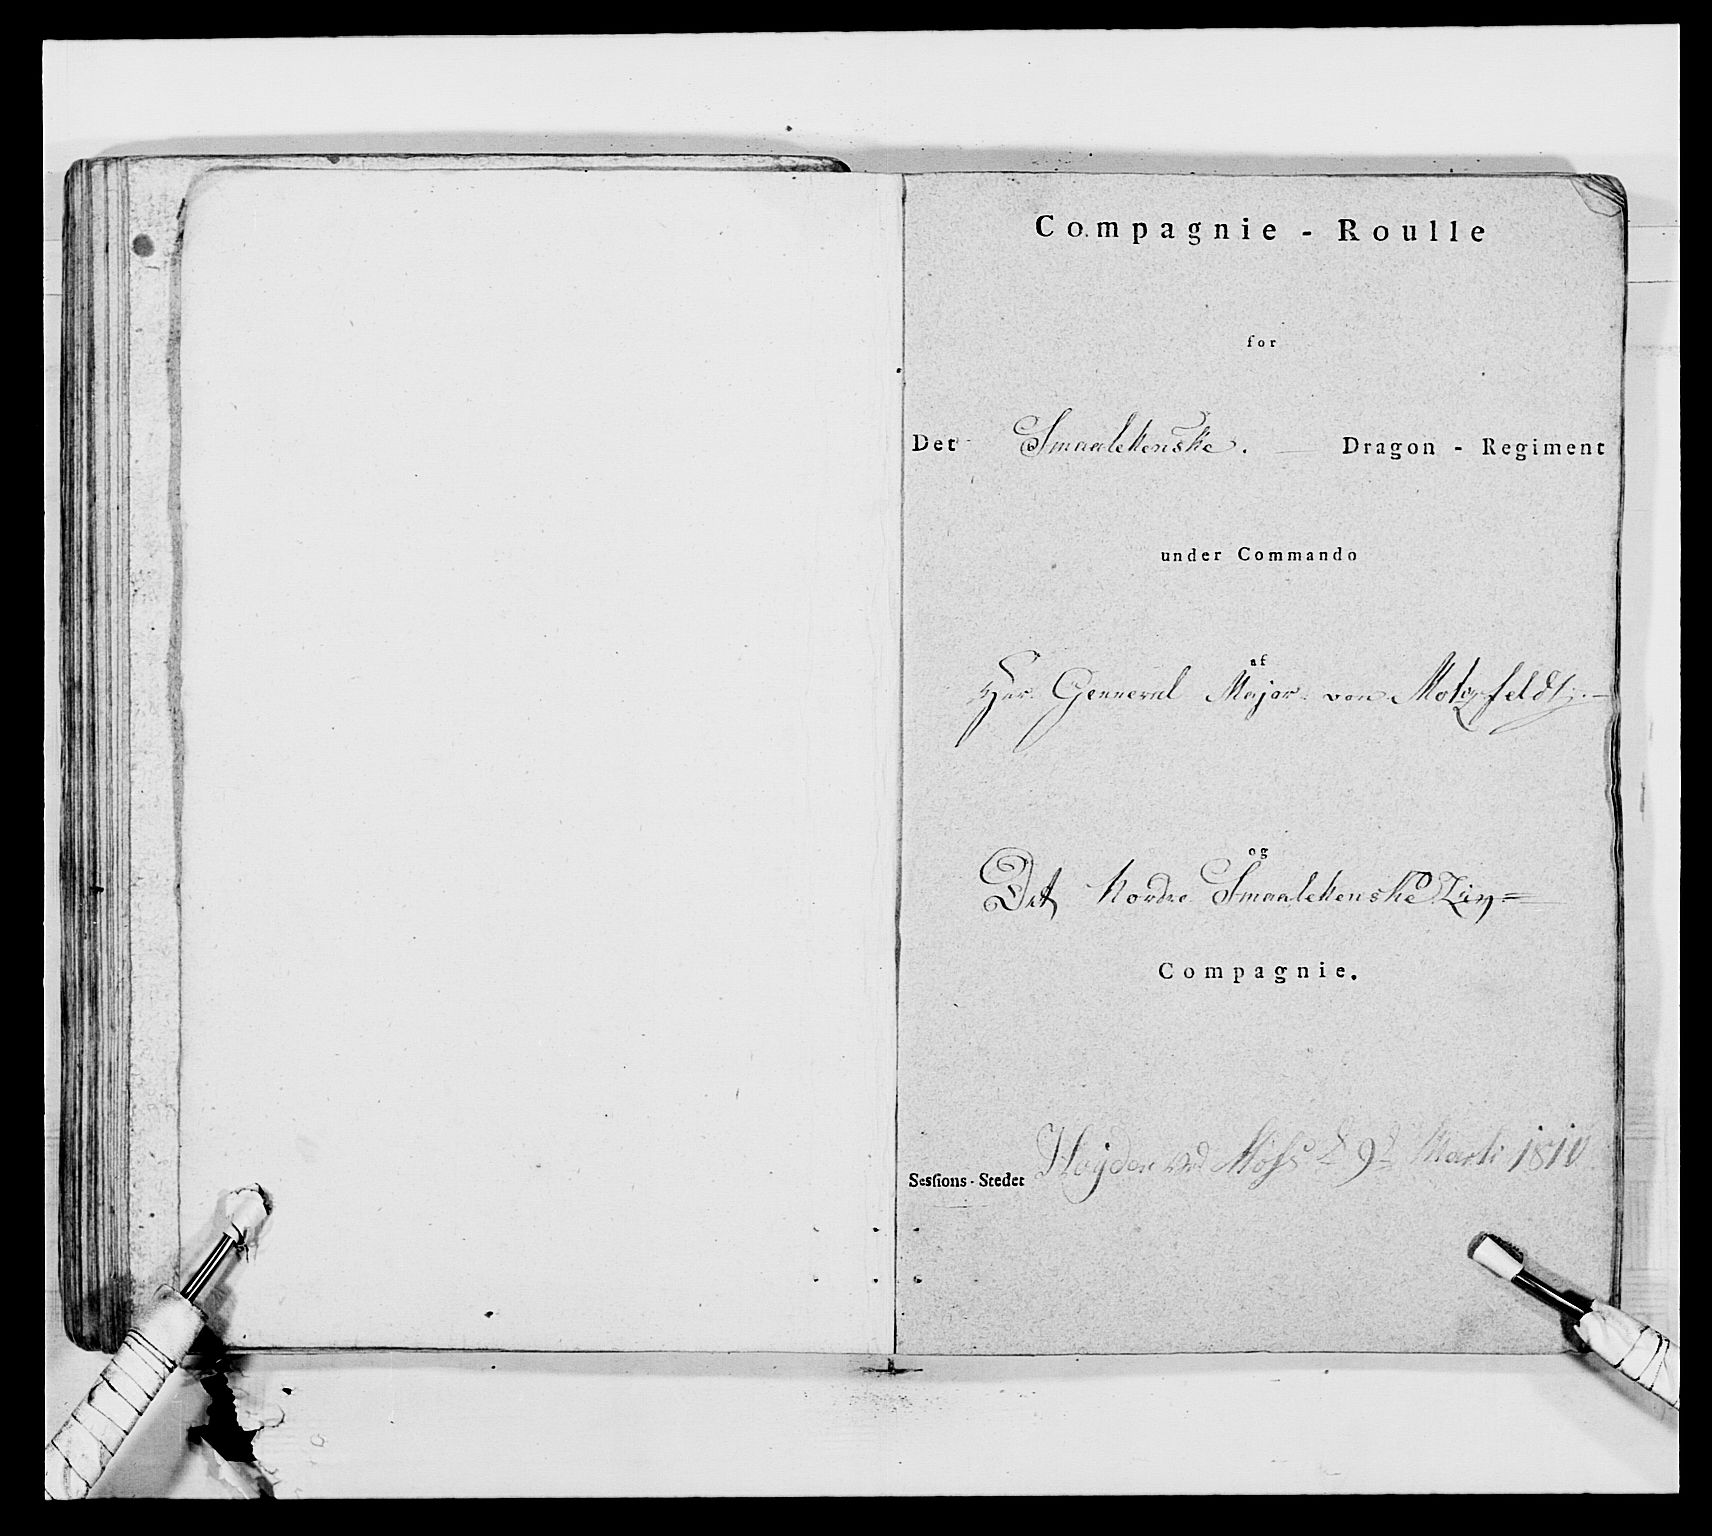 Compagnie - Roulle
for
Det Smaalehenske. Dragon - Regiment
under Commando
af
Her Genneral Major von Motzfeldt
og
Det Nordre Smaalehenske Liv=
Compagnie.
Sessions-Stedet Høyden ved Moss d 9d Marti 1810